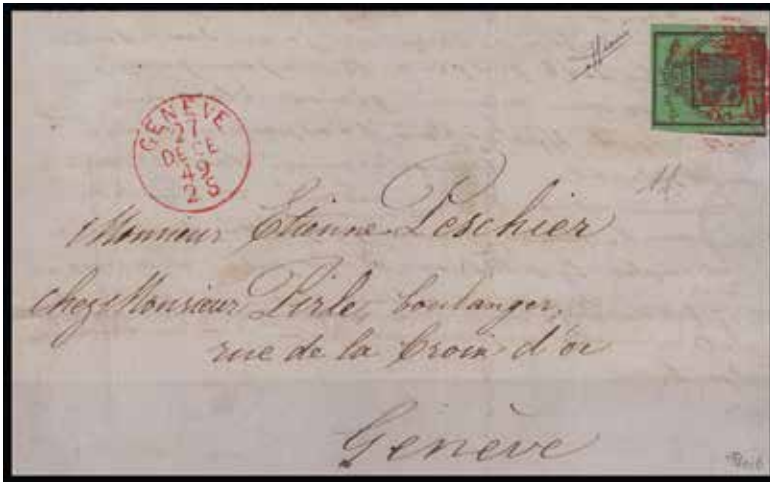 GENÈVE
27
DECE
49
2 S
Monsieur Etienne Peschier
chez Monsieur Pirle, boulanger,
rue de la Croix d'or
Genève